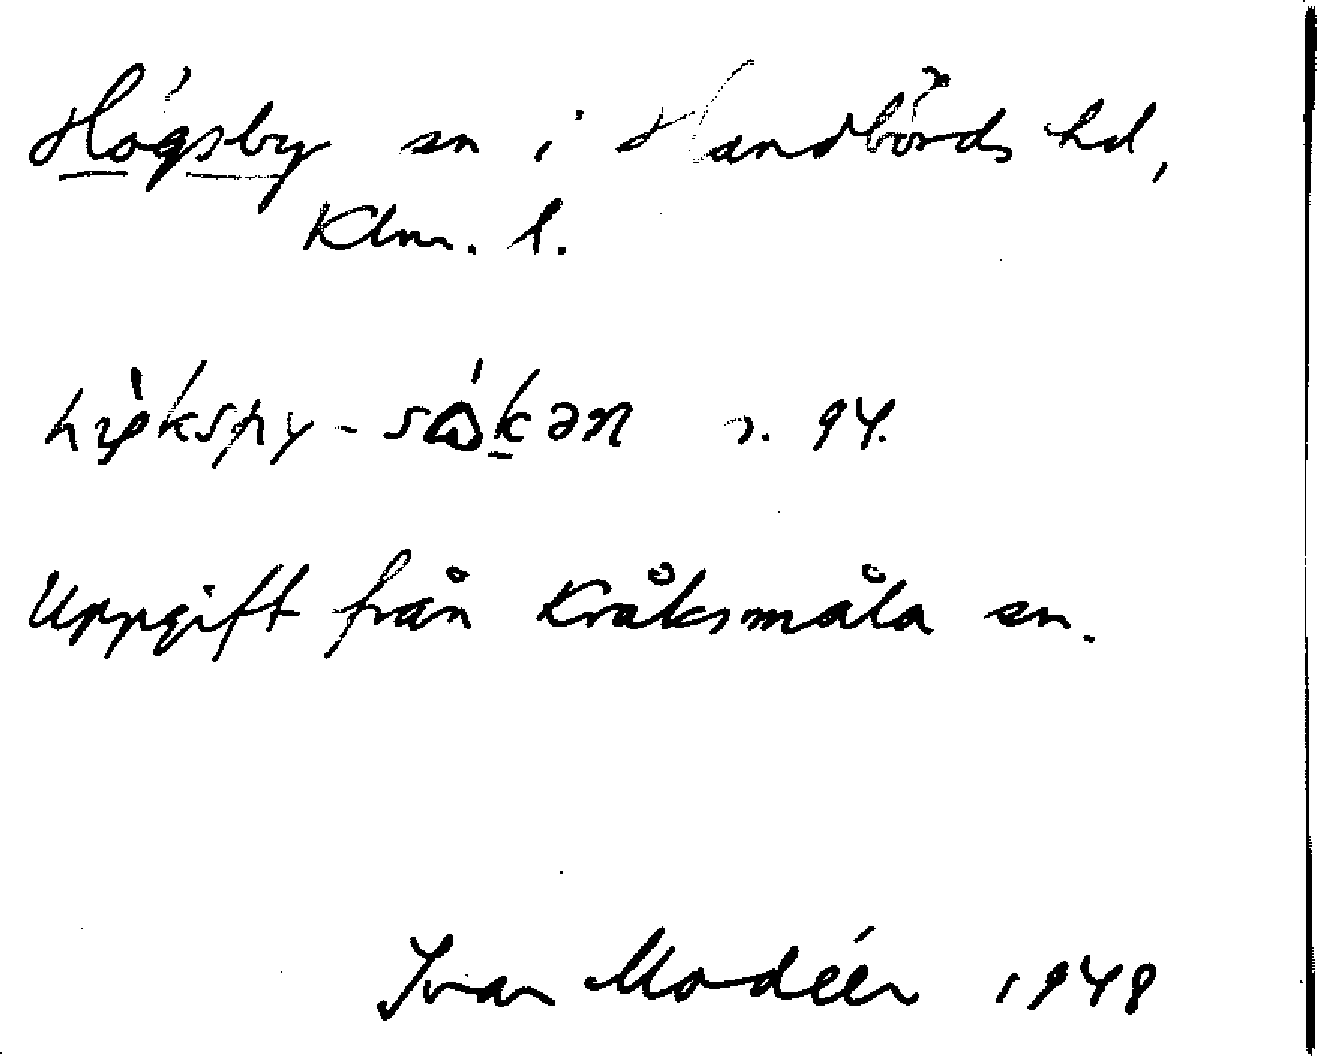 Högsby sn i Handbörds hd,
Klm. l.
Uppgift från Kråksmåla sn.
Ivar Modéer 1948